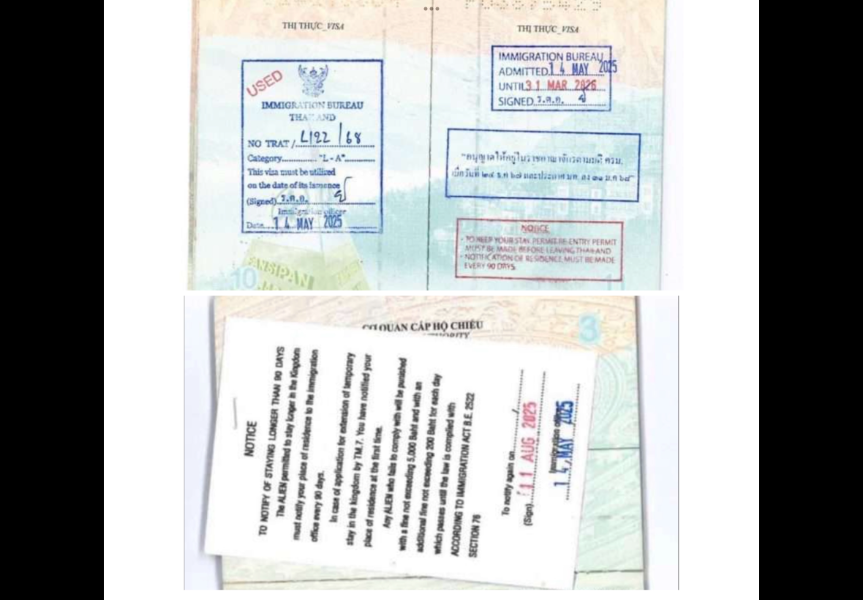 THỊ THỰC_VISA
USED
IMMIGRATION BUREAU
THAILAND
NO TRAT / L122 / 68
Category "L - A"
This visa must be utilized
on the date of its issuance
(Signed) ร.ต.อ.
Immigration officer
Date 14 MAY 2025
10
FANSIPAN
THỊ THỰC_VISA
IMMIGRATION BUREAU
ADMITTED 14 MAY 2025
UNTIL 31 MAR 2026
SIGNED ร.ต.อ.
"อนุญาตให้อยู่ในราชอาณาจักรตามมติ ครม.
NOTICE
- TO KEEP YOUR STAY PERMIT RE-ENTRY PERMIT
MUST BE MADE BEFORE LEAVING THAILAND
- NOTIFICATION OF RESIDENCE MUST BE MADE
EVERY 90 DAYS
CƠ QUAN CẤP HỘ CHIẾU
3
NOTICE
TO NOTIFY OF STAYING LONGER THAN 90 DAYS
The ALIEN permitted to stay longer in the Kingdom
must notify your place of residence to the immigration
office every 90 days.
In case of application for extension of temporary
stay in the kingdom by TM.7. You have notified your
place of residence at the first time.
Any ALIEN who fails to comply with will be punished
with a fine not exceeding 5,000 Baht and with an
additional fine not exceeding 200 Baht for each day
which passes until the law is complied with
ACCORDING TO IMMIGRATION ACT B.E. 2522
SECTION 76
To notify again on
(Sign) 11 AUG 2025
Immigration officer
14 MAY 2025